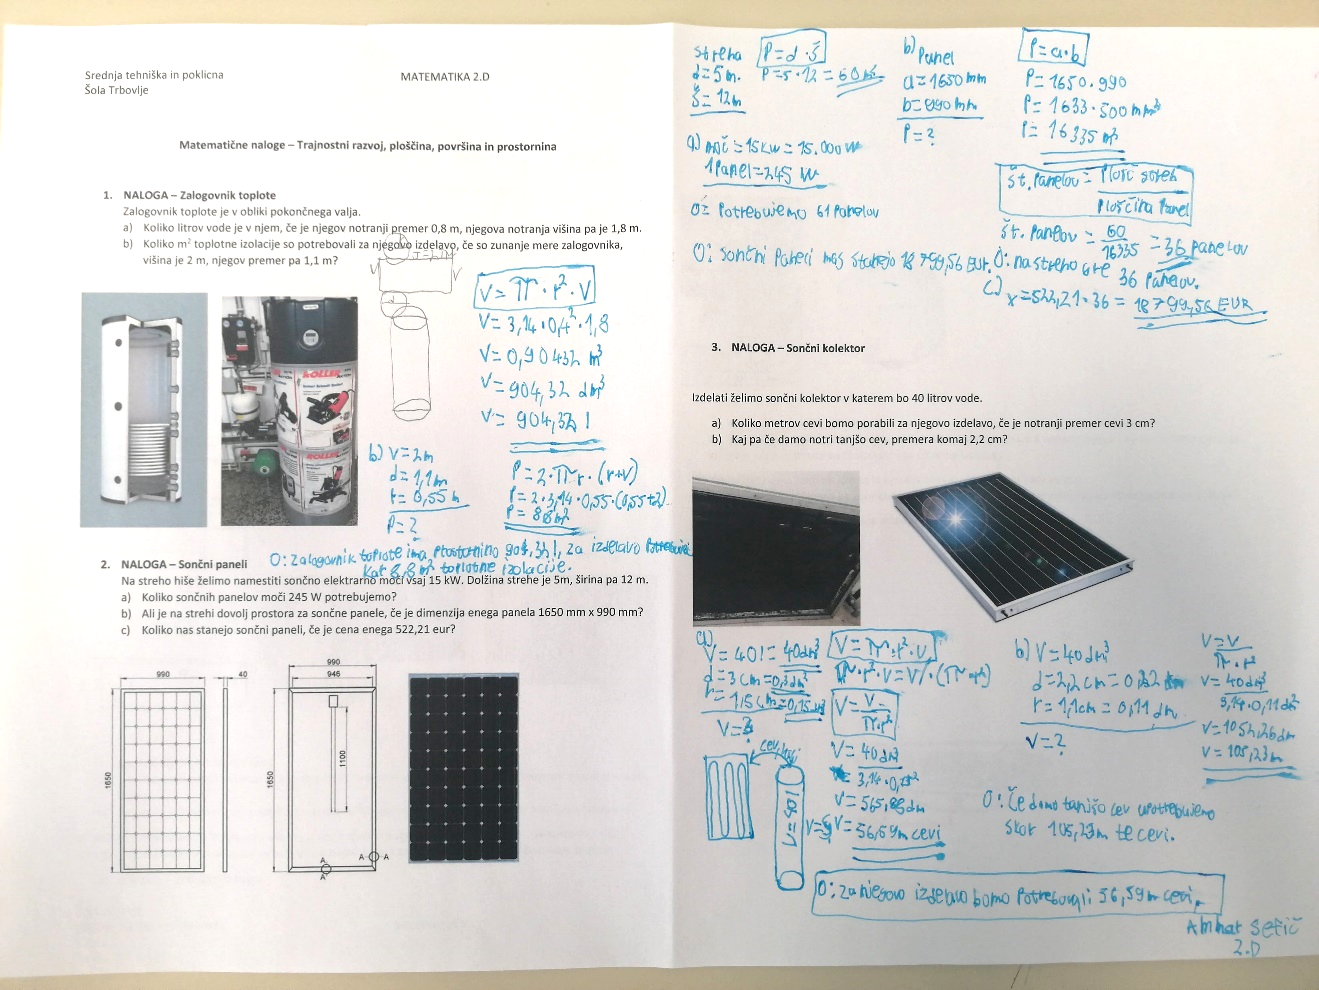 Srednja tehniška in poklicna
Šola Trbovlje
MATEMATIKA 2.D
Matematične naloge – Trajnostni razvoj, ploščina, površina in prostornina
1. NALOGA – Zalogovnik toplote
Zalogovnik toplote je v obliki pokončnega valja.
a) Koliko litrov vode je v njem, če je njegov notranji premer 0,8 m, njegova notranja višina pa je 1,8 m.
b) Koliko m² toplotne izolacije so potrebovali za njegovo izdelavo, če so zunanje mere zalogovnika,
višina je 2 m, njegov premer pa 1,1 m?
V
V
d
V = π · r² · V
V = 3,14 · 0,4² · 1,8
V = 0,90432 m³
V = 904,32 dm³
V = 904,32 l
ROLLER
ROLLER
b) V = 2m
d = 1,1m
r = 0,55 m
P = ?
P = 2 · π r · (r+V)
P = 2 · 3,14 · 0,55 · (0,55+2)
P = 8,8 m²
O: Zalogovnik toplote ima prostornino 904,32 l, za izdelavo potrebuje
kar 8,8 m² toplotne izolacije.
2. NALOGA – Sončni paneli
Na streho hiše želimo namestiti sončno elektrarno moči vsaj 15 kW. Dolžina strehe je 5m, širina pa 12 m.
a) Koliko sončnih panelov moči 245 W potrebujemo?
b) Ali je na strehi dovolj prostora za sončne panele, če je dimenzija enega panela 1650 mm x 990 mm?
c) Koliko nas stanejo sončni paneli, če je cena enega 522,21 eur?
990
40
1650
990
946
1650
1100
A
A
A
A
streha
d = 5 m.
š = 12m
P = d · š
P = 5 · 12 = 60 m²
b) Panel
a = 1650 mm
b = 990 mm
P = ?
P = a · b
P = 1650 · 990
P = 1633 · 500 mm²
P = 16335 m²
a) moč = 15kW = 15.000 W
1 Panel = 245 W
O: Potrebujemo 61 Panelov
Št. Panelov = Plošč streh
Ploščina Panel
Št. Panelov = 60
16335
= 36 panelov
O: na streho gre
36 Panelov.
O: sončni Paneli nas stanejo 18 799,56 EUR.
c) x = 522,21 · 36 = 18799,56 EUR
3. NALOGA – Sončni kolektor
Izdelati želimo sončni kolektor v katerem bo 40 litrov vode.
a) Koliko metrov cevi bomo porabili za njegovo izdelavo, če je notranji premer cevi 3 cm?
b) Kaj pa če damo notri tanjšo cev, premera komaj 2,2 cm?
a)
V = 40 l = 40 dm³
d = 3 cm = 0,3 dm
r = 1,5 cm = 0,15
V = ?
V = π · r² · v
π · r² · v = V / · (π · r²)
v = V
π · r²
V = 40 dm³
3,14 · 0,15²
V = 565,88 dm
V = 56,59 m cevi
V = 40 l
b) V = 40 dm³
d = 2,2 cm = 0,22
r = 1,1 cm = 0,11 dm
V = ?
V = V
π · r²
V = 40 dm³
3,14 · 0,11 dm²
V = 1052,26 dm
V = 105,23 m
O: Če damo tanjšo cev upotrebujemo
skor 105,23m te cevi.
O: Za njegovo izdelavo bomo Potrebovali 56,59m cevi.
2.D